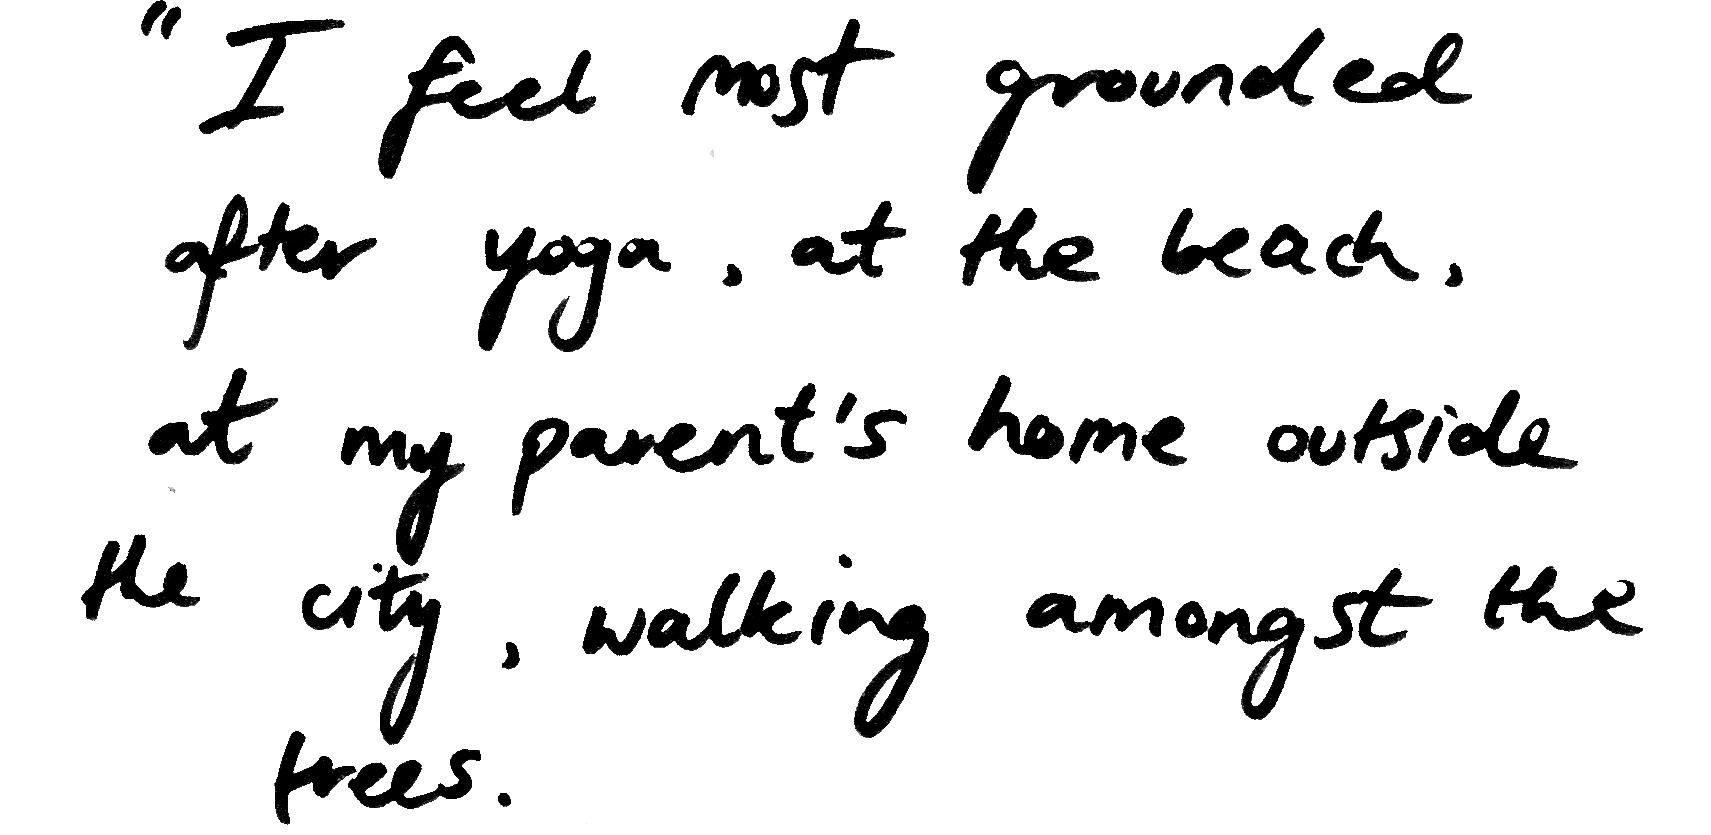 "I feel most grounded
after yoga, at the beach,
at my parent's home outside
the city, walking amongst the
trees.